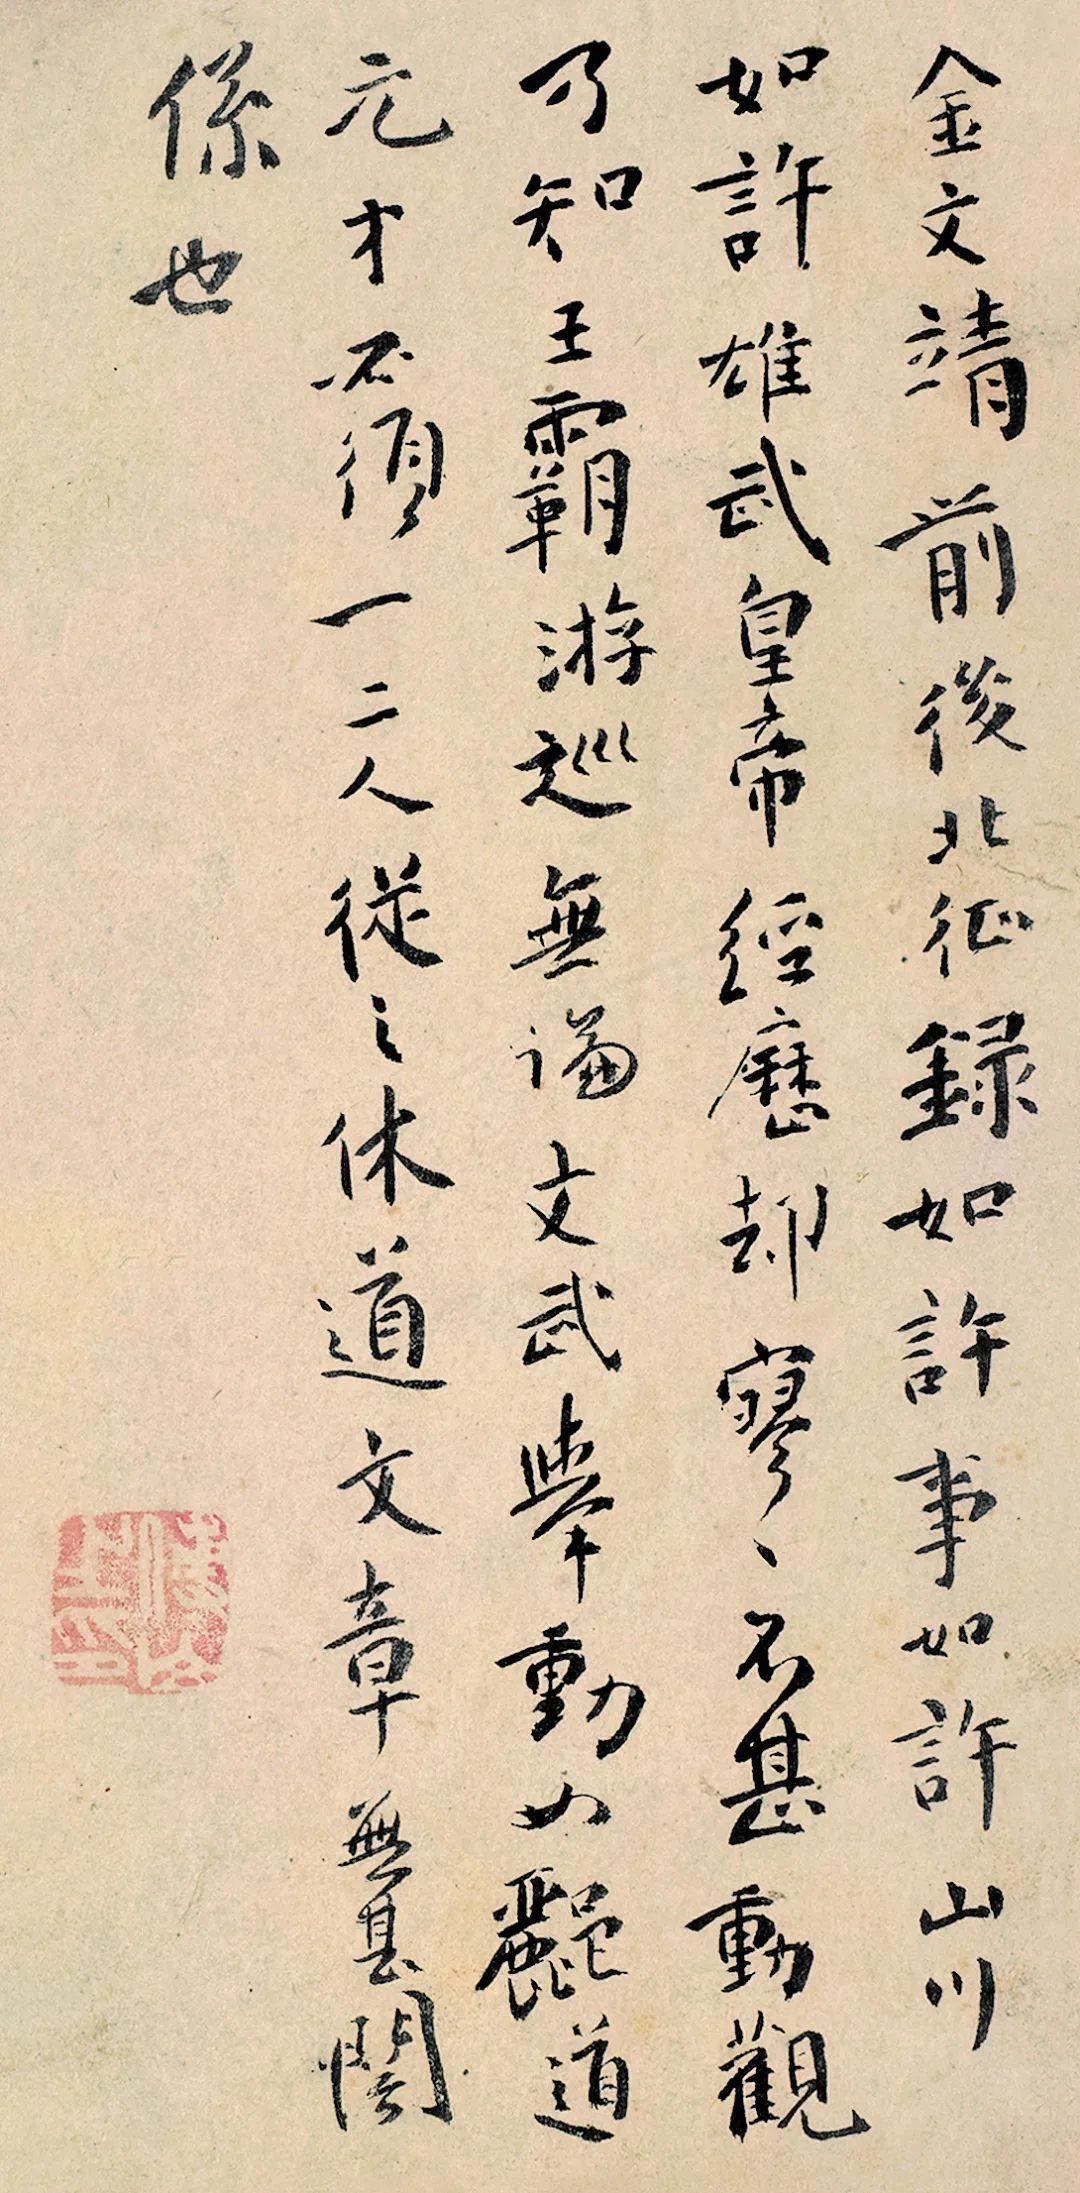 金文靖前後北征録如許事如許山川
如許雄武皇帝經歷却寥〻不甚動觀
乃知王霸游巡無論文武舉動必酈道
元才不須一二人從之休道文章無甚關
係也